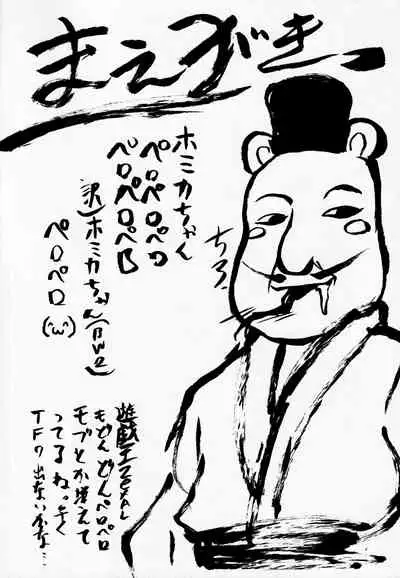 まえがきっ
ホミカちゃん
ペロペロペロ
ペロペロペロ
訳)ホミカちゃん(BW2)
ペロペロ
(^ω^)
ちろっ
遊戯王ZEXAL
もどんどんペロペロ
モブとか増えて
ってるね。早く
TF7出ないかな…